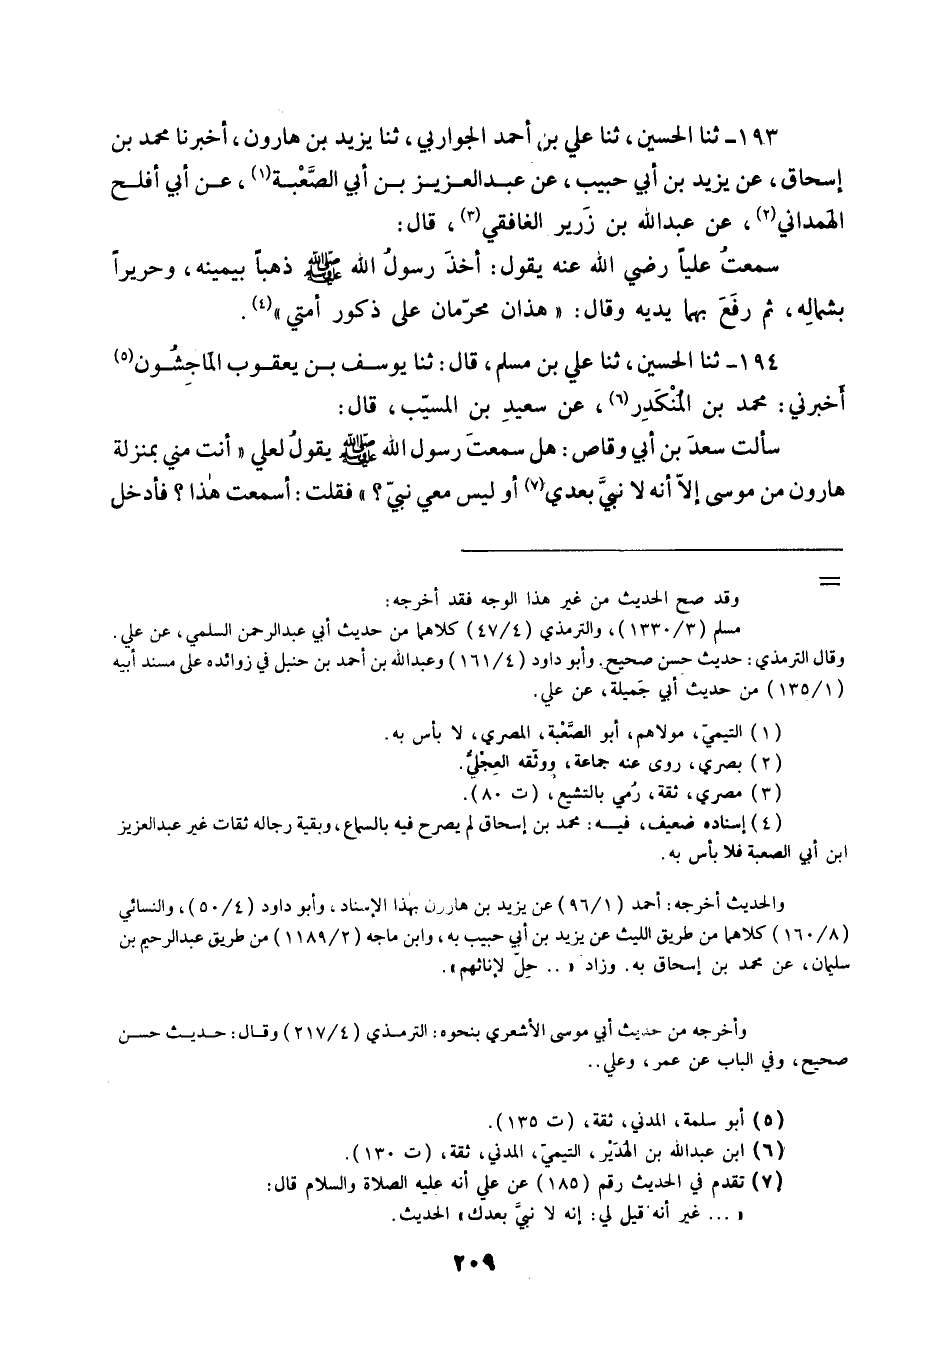 ١٩٣ـ ثنا الحسين، ثنا علي بن أحمد الجواربي، ثنا يزيد بن هارون، أخبرنا محمد بن
إسحاق، عن يزيد بن أبي حبيب، عن عبدالعزيز بن أبي الصَّعْبة(١)، عن أبي أفلح
الهَمداني(٢)، عن عبدالله بن زَرير الغافقي(٣)، قال:
سمعتُ علياً رضي الله عنه يقول: أخذَ رسولُ الله ﷺ ذهباً بيمينه، وحريراً
بشمالِه، ثم رفَعَ بهما يديه وقال: «هذان محرّمان على ذكور أمتي»(٤).
١٩٤ـ ثنا الحسين، ثنا علي بن مسلم، قال: ثنا يوسف بن يعقوب الماجِشُون(٥)
أخبرني: محمد بن المُنْكَدِر(٦)، عن سعيدِ بن المسيّب، قال:
سألت سعدَ بن أبي وقاص: هل سمعتَ رسول الله ﷺ يقولُ لعلي «أنت مني بمنزلة
هارون من موسى إلاّ أنه لا نبيَّ بعدي(٧) أو ليس معي نبيّ؟» فقلت: أسمعت هٰذا؟ فأدخل
=
وقد صح الحديث من غير هذا الوجه فقد أخرجه:
مسلم (١٣٣٠/٣)، والترمذي (٤٧/٤) كلاهما من حديث أبي عبدالرحمن السلمي، عن علي.
وقال الترمذي: حديث حسن صحيح. وأبو داود (١٦١/٤) وعبدالله بن أحمد بن حنبل في زوائده على مسند أبيه
(١٣٥/١) من حديث أبي جَميلة، عن علي.
(١) التيميّ، مولاهم، أبو الصَّعْبة، المصري، لا بأس به.
(٢) بصري، روى عنه جماعة، ووثّقه العِجْليُّ.
(٣) مصري، ثقة، رُمي بالتشيع، (ت ٨٠).
(٤) إسناده ضعيف، فيه: محمد بن إسحاق لم يصرح فيه بالسماع، وبقية رجاله ثقات غير عبدالعزيز
ابن أبي الصعبة فلا بأس به.
والحديث أخرجه: أحمد (٩٦/١) عن يزيد بن هارون بهذا الإسناد، وأبو داود (٥٠/٤)، والنسائي
(١٦٠/٨) كلاهما من طريق الليث عن يزيد بن أبي حبيب به، وابن ماجه (١١٨٩/٢) من طريق عبدالرحيم بن
سليمان، عن محمد بن إسحاق به. وزاد «.. حِلّ لإناثهم».
وأخرجه من حديث أبي موسى الأشعري بنحوه: الترمذي (٢١٧/٤) وقال: حديث حسن
صحيح، وفي الباب عن عمر، وعلي..
(٥) أبو سلمة، المدني، ثقة، (ت ١٣٥).
(٦) ابن عبدالله بن الهُدَيْر، التيميّ، المدني، ثقة، (ت ١٣٠).
(٧) تقدم في الحديث رقم (١٨٥) عن علي أنه عليه الصلاة والسلام قال:
«... غير أنه قيل لي: إنه لا نبيَّ بعدك» الحديث.
٢٠٩